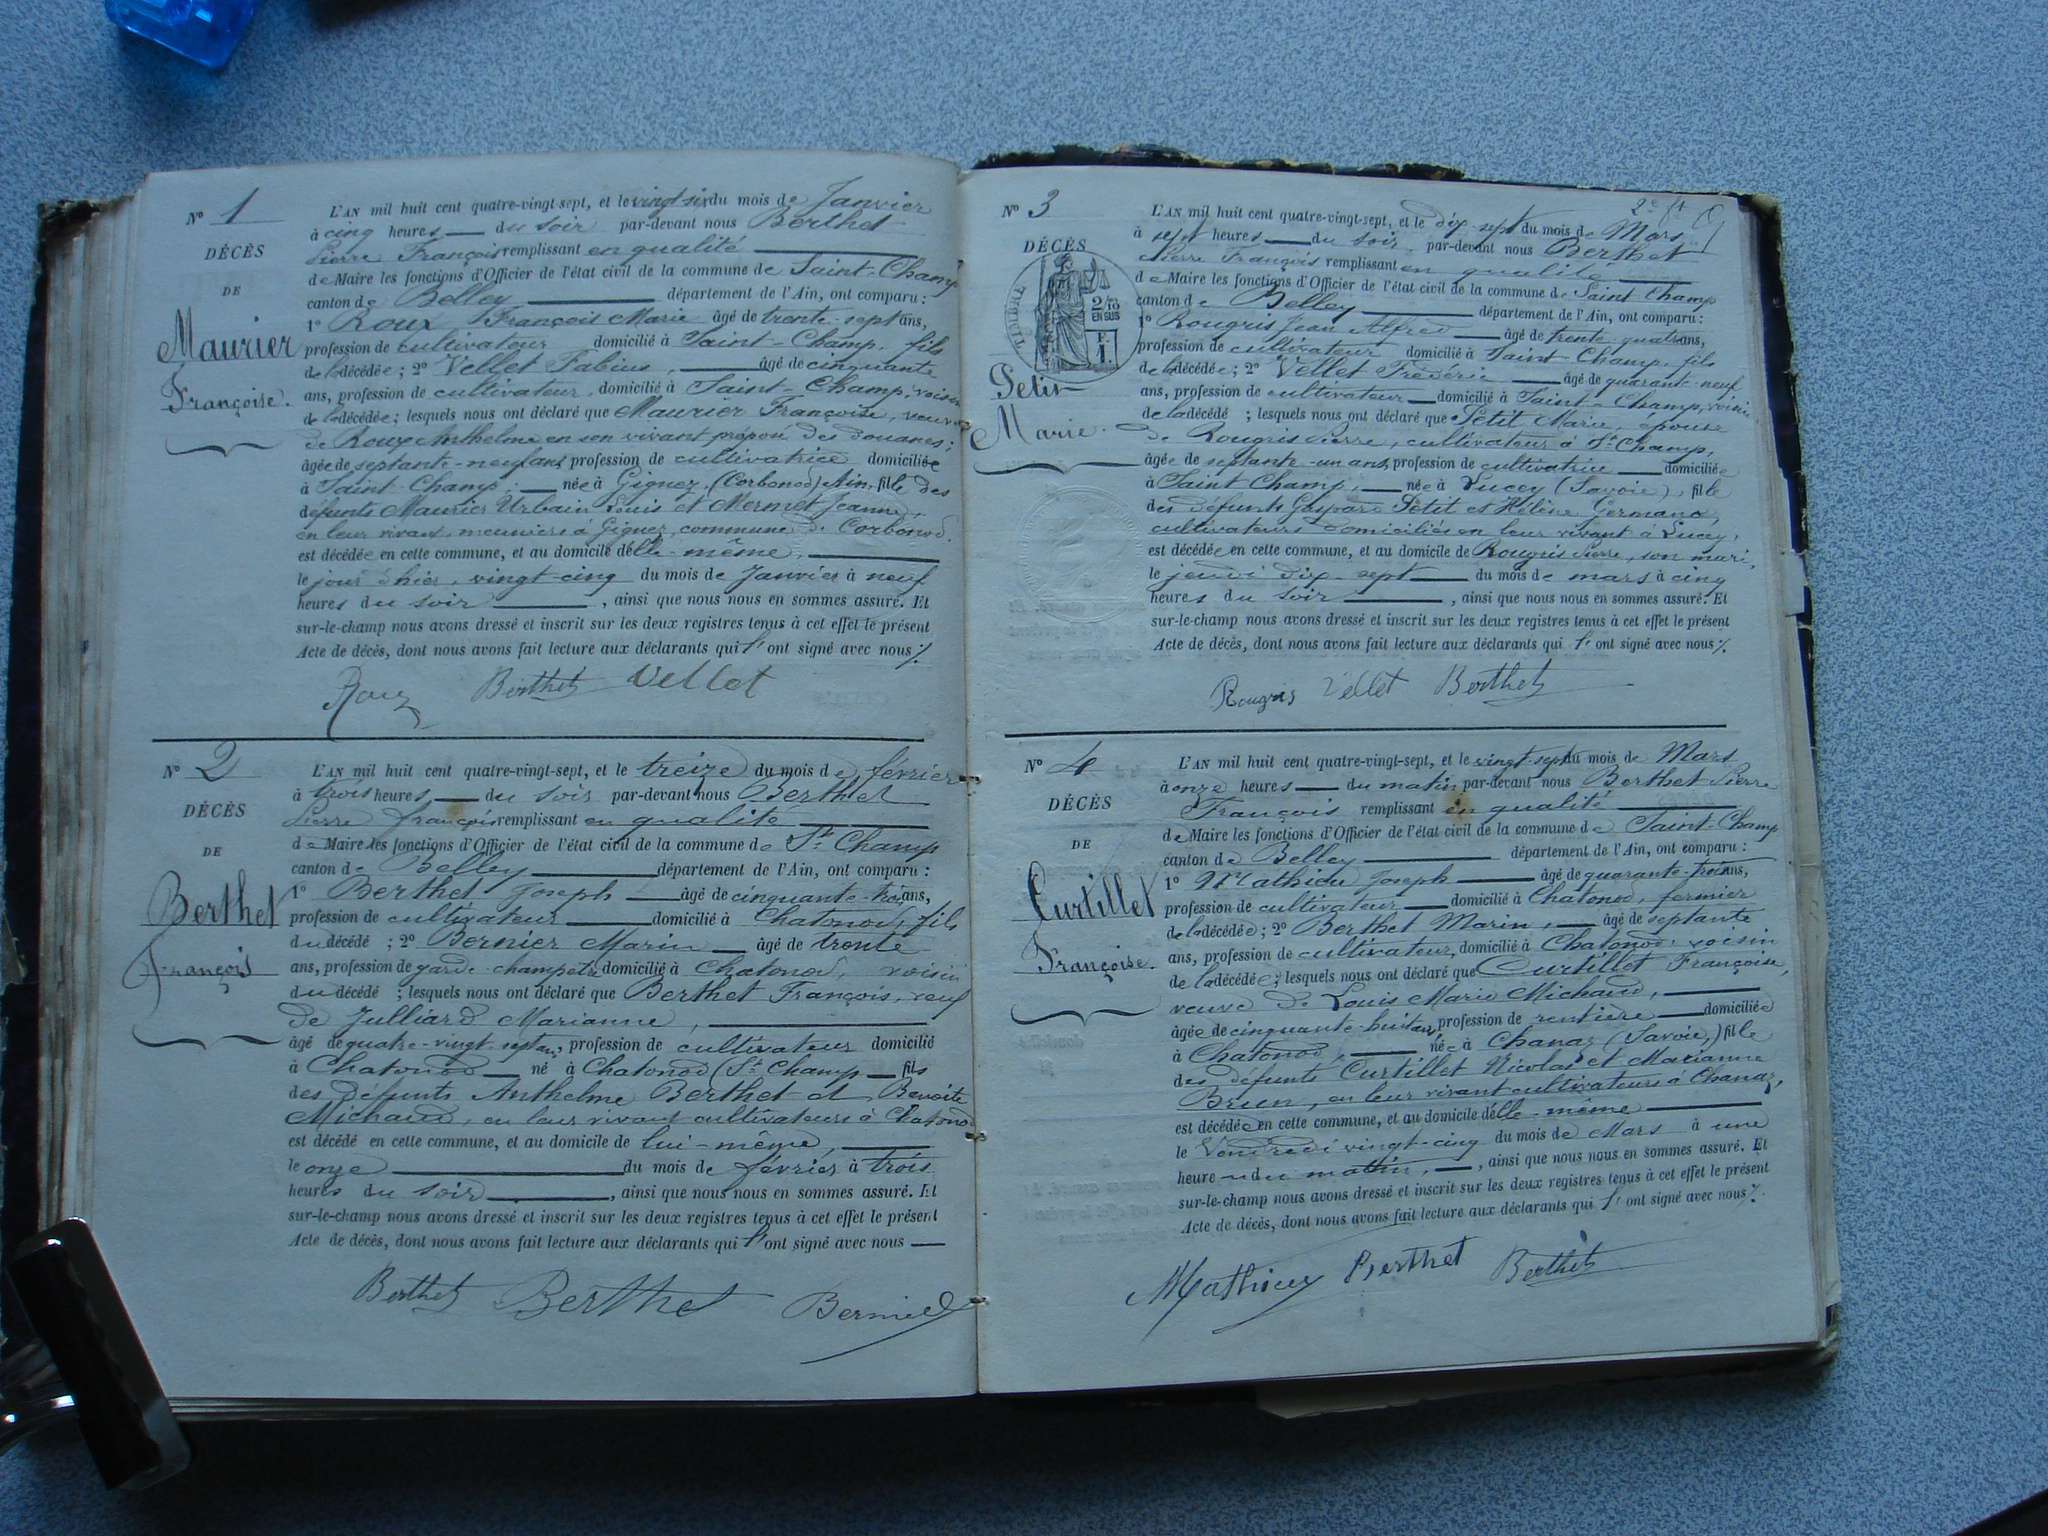 N° 1
DÉCÈS
DE
Maurier
Françoise.
L'AN mil huit cent quatre-vingt-sept, et le vingt six du mois de Janvier
à cinq heures du soir par-devant nous Berthet
Pierre François remplissant en qualité
de Maire les fonctions d'Officier de l'état civil de la commune de Saint-Champ
canton de Belley département de l'Ain, ont comparu :
1° Roux François Marie âgé de trente-sept ans,
profession de cultivateur domicilié à Saint-Champ, fils
de la décédée ; 2° Vellet Fabius, âgé de cinquante
ans, profession de cultivateur, domicilié à Saint-Champ, voisin
de la décédée ; lesquels nous ont déclaré que Maurier Françoise, veuve
de Roux Anthelme en son vivant préposé des douanes ;
âgée de septante-neuf ans, profession de cultivatrice domiciliée
à Saint-Champ, née à Gignez, (Corbonod) Ain, fille des
defunts Maurier Urbain Louis et Mermet Jeanne,
en leur vivant meuniers à Gignez, commune de Corbonod.
est décédée en cette commune, et au domicile d'elle-même,
le jour d'hier, vingt-cinq du mois de Janvier à neuf
heures du soir, ainsi que nous nous en sommes assuré. Et
sur-le-champ nous avons dressé et inscrit sur les deux registres tenus à cet effet le présent
Acte de décès, dont nous avons fait lecture aux déclarants qui l'ont signé avec nous ./.
Roux Berthet Vellet
N° 2
DÉCÈS
DE
Berthet
François
L'AN mil huit cent quatre-vingt-sept, et le treize du mois de février
à trois heures du soir par-devant nous Berthet
Pierre françois remplissant en qualité
de Maire les fonctions d'Officier de l'état civil de la commune de St Champ
canton de Belley département de l'Ain, ont comparu :
1° Berthet Joseph âgé de cinquante-trois ans,
profession de cultivateur domicilié à Chatonod, fils
du décédé ; 2° Bernier Marin âgé de trente
ans, profession de garde-champêtre domicilié à Chatonod, voisin
du décédé ; lesquels nous ont déclaré que Berthet François, veuf
de Julliard Marianne,
âgé de quatre-vingt-sept ans, profession de cultivateur domicilié
à Chatonod né à Chatonod (St Champ fils
des défunts Anthelme Berthet et Benoite
Michaud, en leur vivant cultivateurs à Chatonod
est décédé en cette commune, et au domicile de lui-même,
le onze du mois de février à trois
heures du soir, ainsi que nous nous en sommes assuré. Et
sur-le-champ nous avons dressé et inscrit sur les deux registres tenus à cet effet le présent
Acte de décès, dont nous avons fait lecture aux déclarants qui l'ont signé avec nous
Berthet Berthet Bernier
2e ft
N° 3
DÉCÈS
TIMBRE
2/10
EN SUS
F.
1.
Petit
Marie.
L'AN mil huit cent quatre-vingt-sept, et le dix-sept du mois de Mars
à sept heures du soir par-devant nous Berthet
Pierre François remplissant en qualité
de Maire les fonctions d'Officier de l'état civil de la commune de Saint Champ
canton de Belley département de l'Ain, ont comparu :
1° Rougris Jean Alfred âgé de trente quatre ans,
profession de cultivateur domicilié à Saint-Champ, fils
de la décédée ; 2° Vellet Fréderic âgé de quarant-neuf
ans, profession de cultivateur domicilié à Saint-Champ, voisin
de la décédé ; lesquels nous ont déclaré que Petit Marie, épouse
de Rougris Pierre, cultivateur à St Champ,
âgée de septante-un ans, profession de cultivatrice domiciliée
à Saint Champ, née à Lucey (Savoie), fille
des défunts Gaspard Petit et Hélène Germand,
cultivateurs domiciliés en leur vivant à Lucey,
est décédée en cette commune, et au domicile de Rougris Pierre, son mari,
le jeudi dix-sept du mois de mars à cinq
heures du soir, ainsi que nous nous en sommes assuré. Et
sur-le-champ nous avons dressé et inscrit sur les deux registres tenus à cet effet le présent
Acte de décès, dont nous avons fait lecture aux déclarants qui l'ont signé avec nous ./.
Rougris Vellet Berthet
N° 4
DÉCÈS
DE
Curtillet
Françoise.
L'AN mil huit cent quatre-vingt-sept, et le vingt-sept du mois de Mars
à onze heures du matin par-devant nous Berthet Pierre
François remplissant en qualité
de Maire les fonctions d'Officier de l'état civil de la commune de Saint-Champ
canton de Belley département de l'Ain, ont comparu :
1° Mathieu Joseph âgé de quarante-trois ans,
profession de cultivateur domicilié à Chatonod, fermier
de la décédée ; 2° Berthet Marin, âgé de septante
ans, profession de cultivateur, domicilié à Chatonod, voisin
de la décédée ; lesquels nous ont déclaré que Curtillet Françoise,
veuve de Louis Marie Michaud,
âgée de cinquante-huit ans, profession de rentière domiciliée
à Chatonod, née à Chanaz (Savoie,) fille
des défunts Curtillet Nicolas et Marianne
Brun, en leur vivant cultivateurs à Chanaz,
est décédée en cette commune, et au domicile d'elle-même
le Vendredi vingt-cinq du mois de Mars à une
heure du matin, ainsi que nous nous en sommes assuré. Et
sur-le-champ nous avons dressé et inscrit sur les deux registres tenus à cet effet le présent
Acte de décès, dont nous avons fait lecture aux déclarants qui l'ont signé avec nous ./.
Mathieu Berthet Berthet